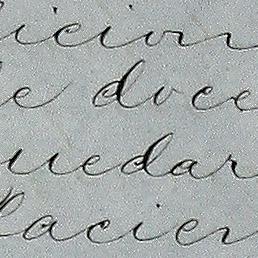 icion
e doce
uedar
acien